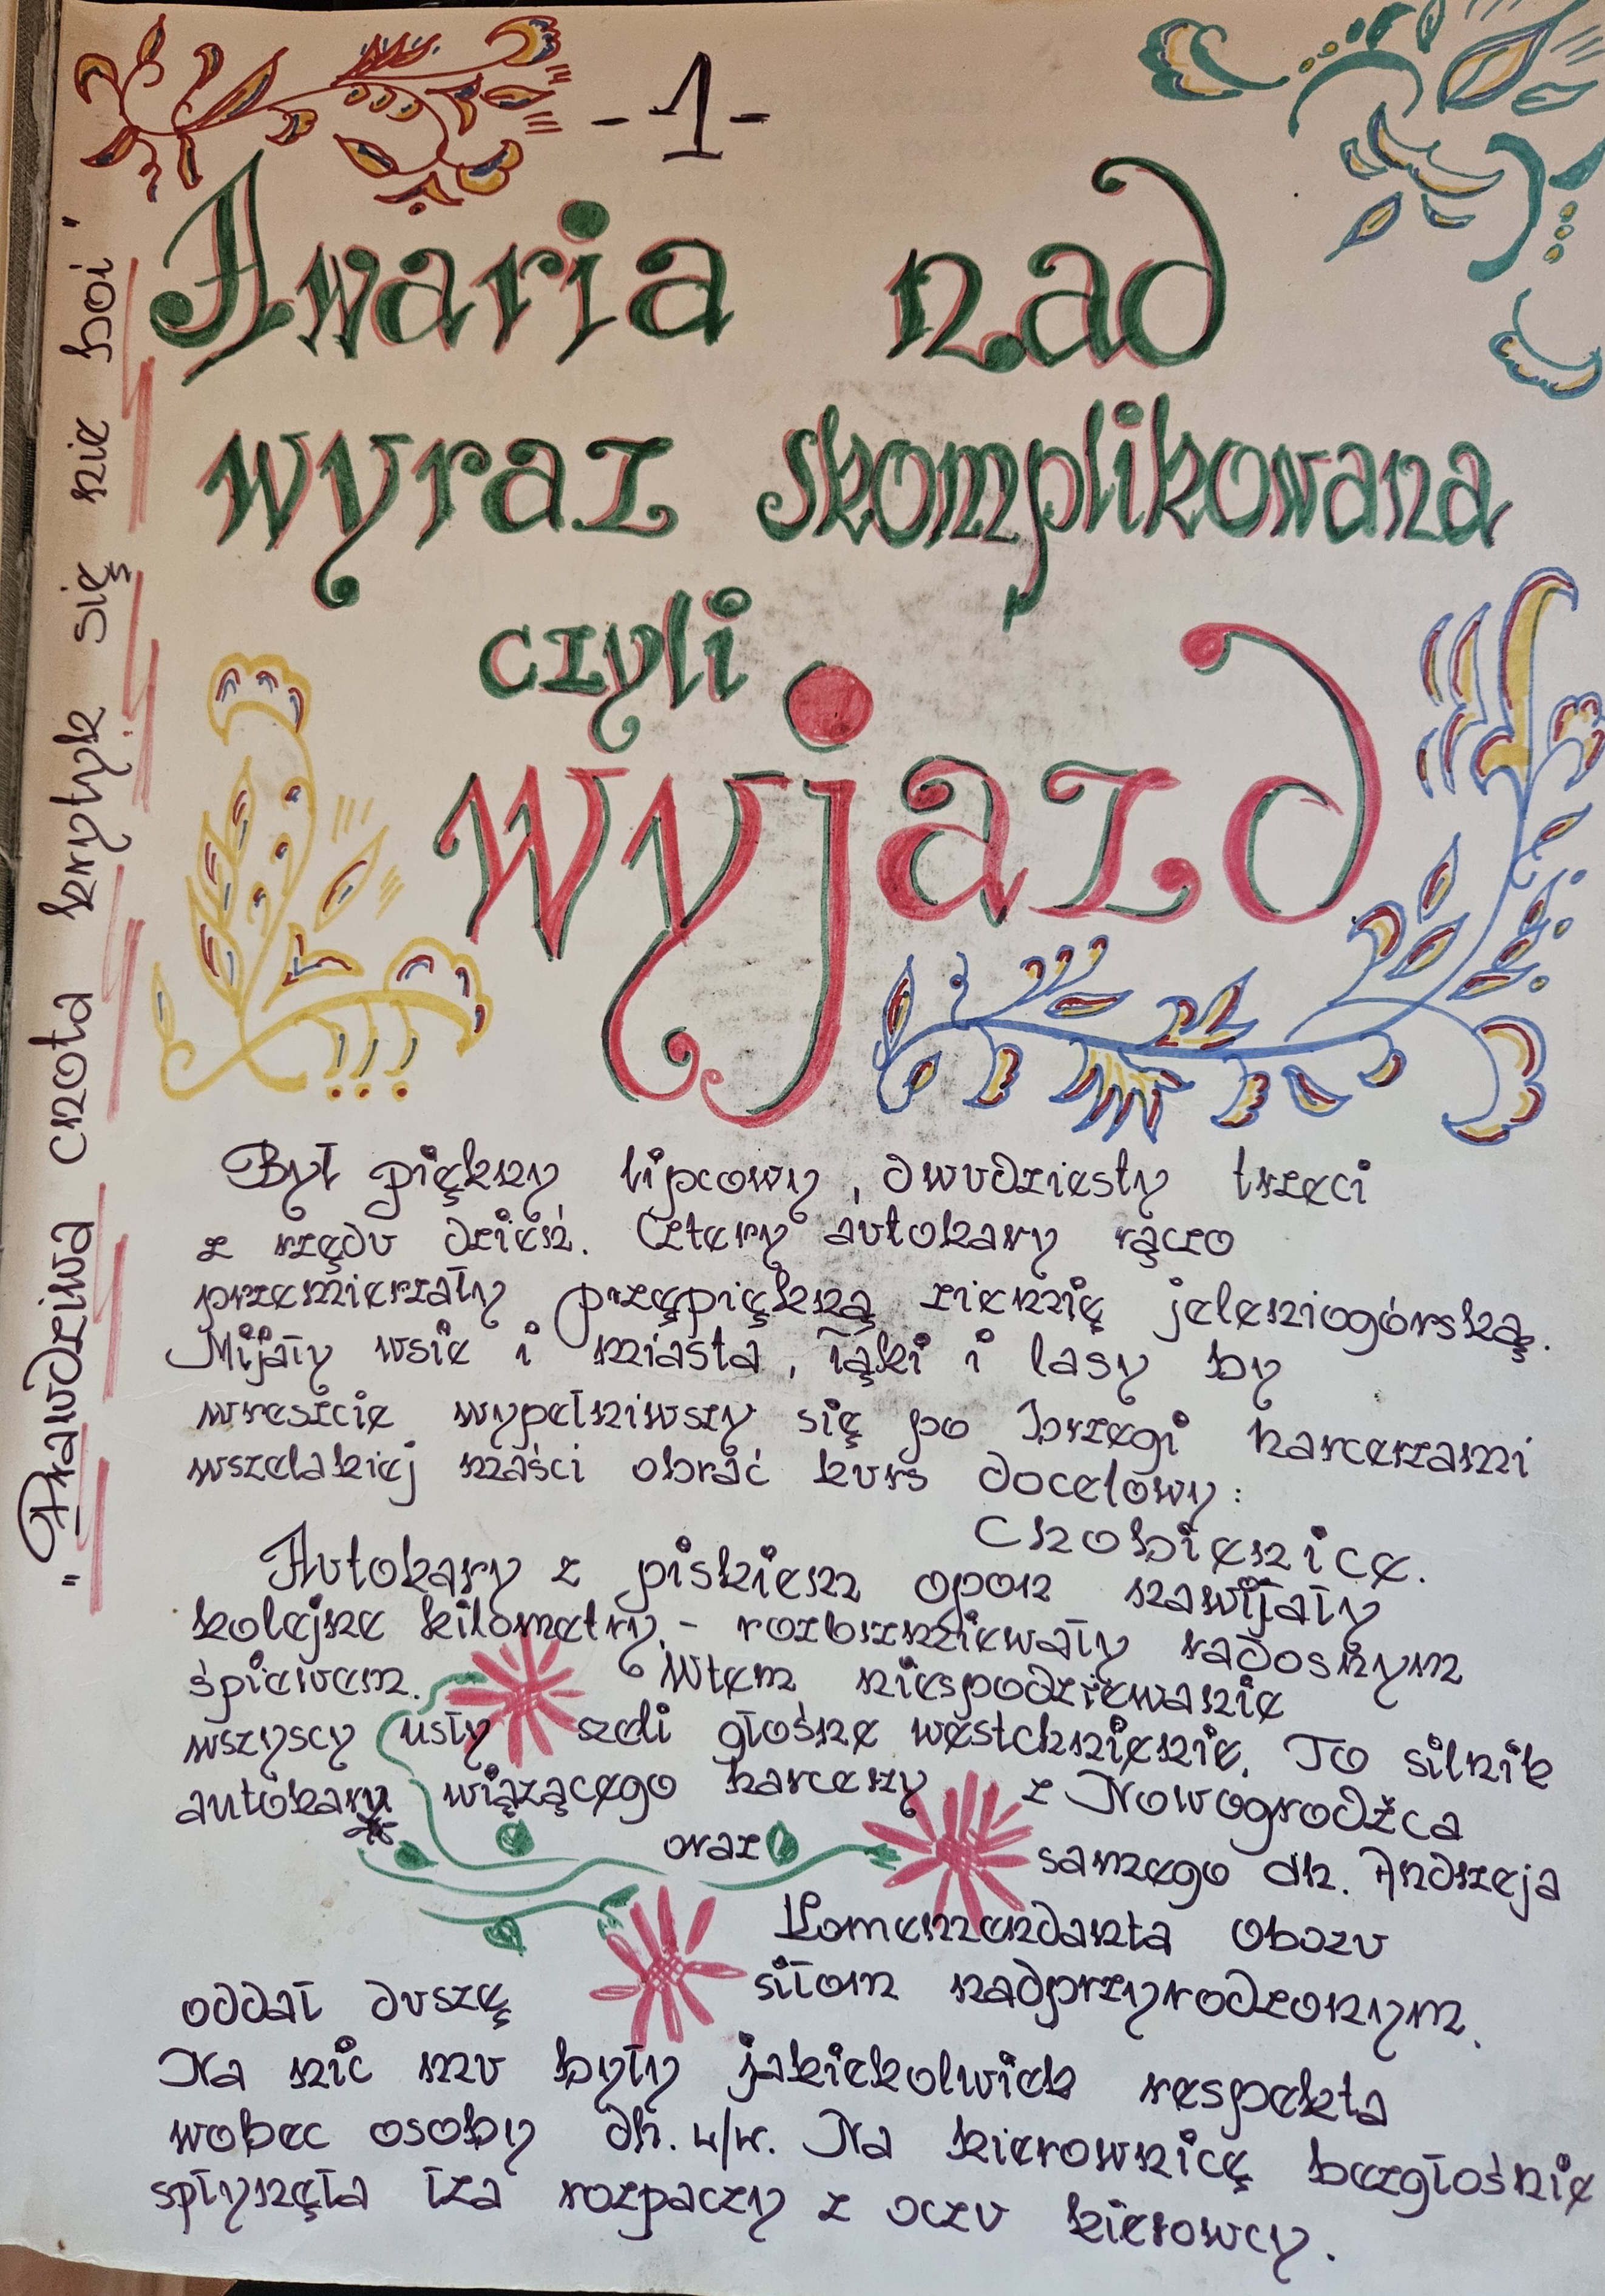 - 1 -
Awaria nad
wyraz skomplikowana
czyli
wyjazd
Był piękny lipcowy, dwudziesty trzeci
z rzędu dzień. Cztery autokary rączo
przemierzały przepiękną ziemię jeleniogórską.
Mijały wsie i miasta, łąki i lasy by
wreszcie wypełniwszy się po brzegi harcerzami
wszelakiej maści obrać kurs docelowy:
Chobienice.
Autokary z piskiem opon nawijały
kolejne kilometry, - rozbrzmiewały radosnym
śpiewem. Wtem niespodziewanie
wszyscy usły szeli głośne westchnienie. To silnik
autokaru wiązącego harcerzy z Nowogrodźca
oraz samego dh. Andrzeja
Komemendanta obozu
oddał duszę siłom nadprzyrodzonym.
Na nic mu były jakiekolwiek respekta
wobec osoby dh. w/w. Na kierownicę bezgłośnie
spłynęła łza rozpaczy z oczu kierowcy.
"Prawdziwa cnota krytyk się nie boi"